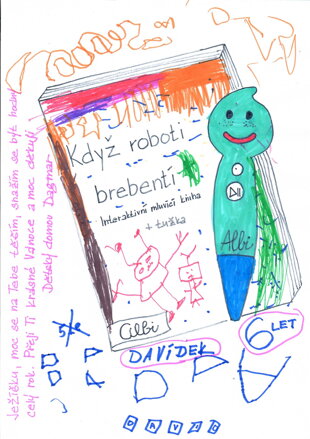 Když roboti
brebentí
Interaktivní mluvící kniha
+ tužka
Albi
Albi
Ježíšku, moc se na Tebe těším, snažím se být hodný
celý rok. Přeji Ti krásné Vánoce a moc děkuji
Dětský domov Dagmar
DAVÍDEK
6 LET
D A V I D